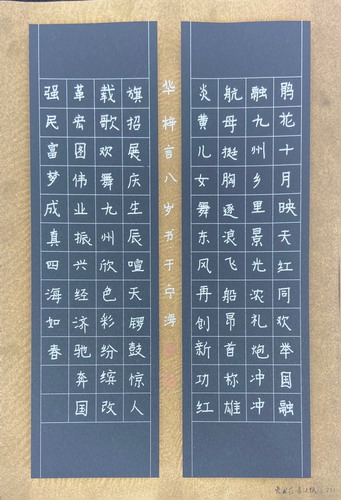 鹃花十月映天红同欢举国融
融九州乡里景光浓礼炮冲冲
航母挺胸逐浪飞船昂首称雄
炎黄儿女舞东风再创新功红
旗招展庆生辰喧天锣鼓惊人
载歌欢舞九州欣色彩纷缤改
革宏图伟业振兴经济驰奔国
强民富梦成真四海如春
华梓言八岁书于宁海